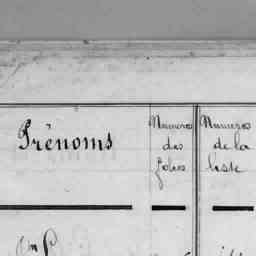 Prénoms
Numeros
des
folios
Numeros
de la
liste